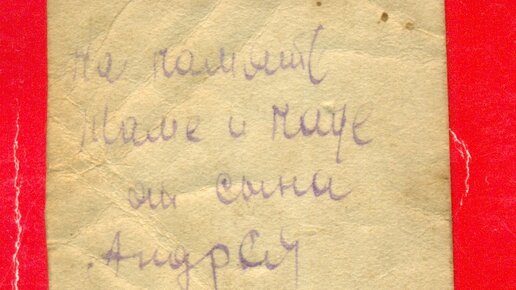 На память
Маме и папе
от сына
Андрей